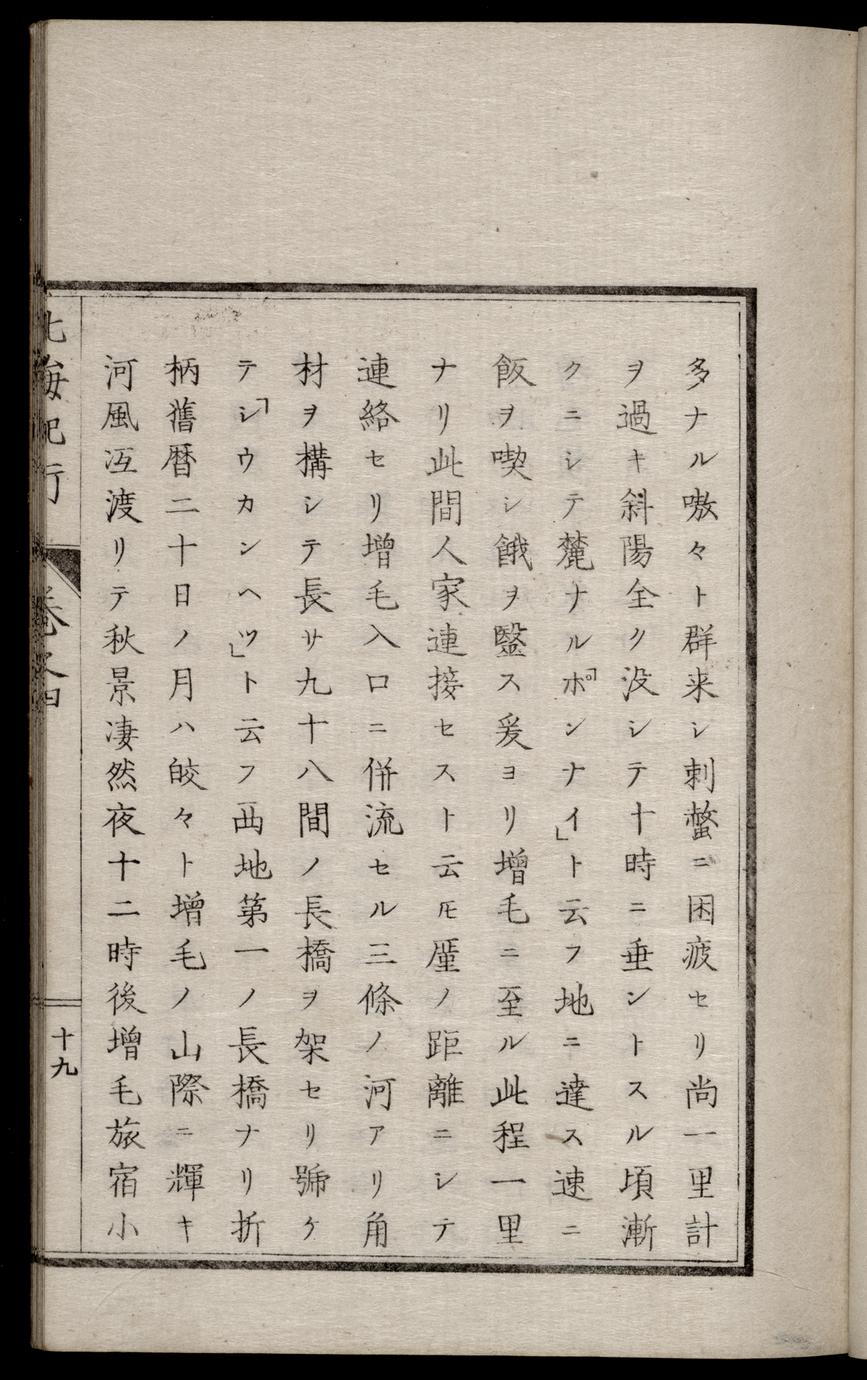 多ナル嗷々ト群来シ刺螫ニ困疲セリ尚一里計
ヲ過キ斜陽全ク没シテ十時ニ垂ントスル頃漸
クニシテ麓ナル「ポンナイ」ト云フ地ニ達ス速ニ
飯ヲ喫シ餓ヲ医ス爰ヨリ增毛ニ至ル此程一里
ナリ此間人家連接セスト云𪜈僅ノ距離ニシテ
連絡セリ增毛入口ニ併流セル三條ノ河アリ角
材ヲ構シテ長サ九十八間ノ長橋ヲ架セリ號ケ
テ「シウカンヘツ」ト云フ西地第一ノ長橋ナリ折
柄舊暦二十日ノ月ハ皎々ト增毛ノ山際ニ輝キ
河風冱渡リテ秋景凄然夜十二時後增毛旅宿小
北海紀行
卷之四
十九